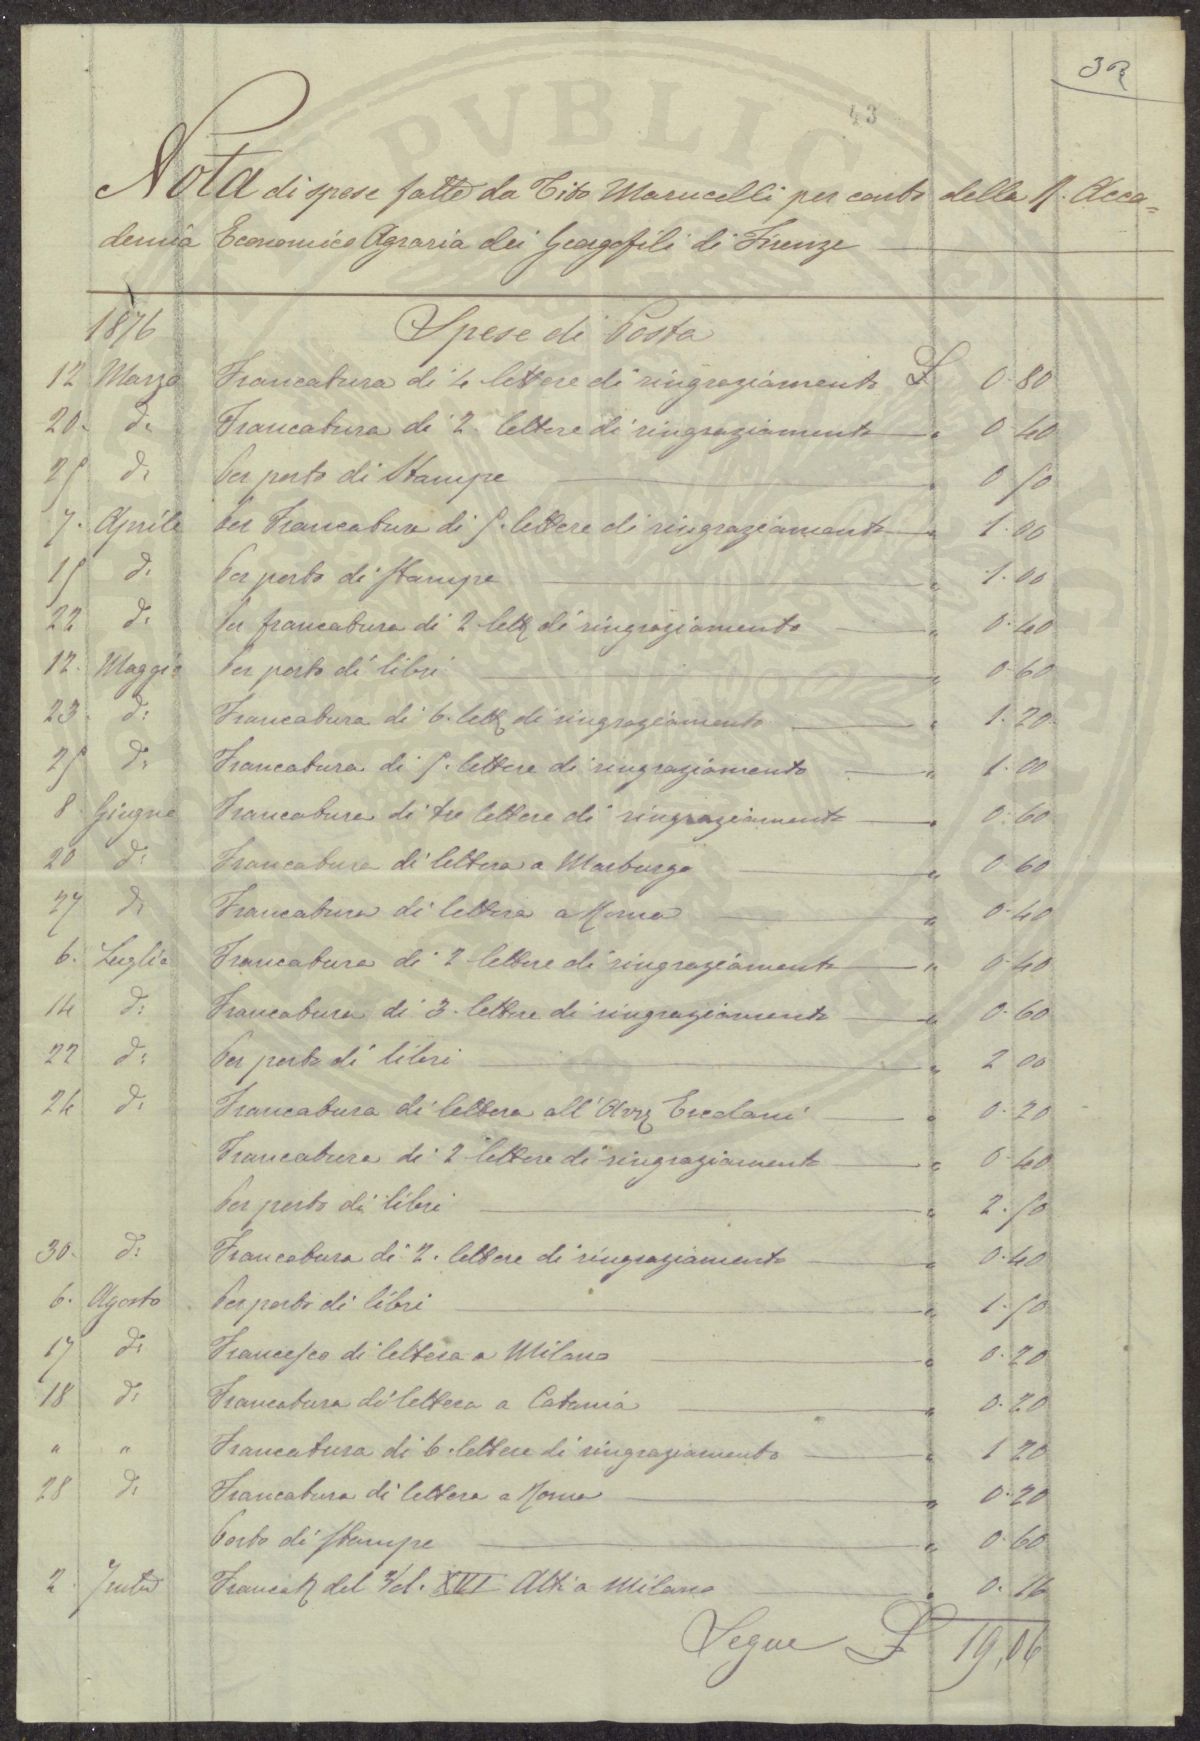 32
43
Nota di spese fatte da Tito Marucelli per conto della R. Acca=
demia Economico Agraria dei Georgofili di Firenze
1876 Spese di Posta
12 Marzo Francatura di 4 lettere di ringraziamento £ 0.80
20. d: Francatura di 2 lettere di ringraziamento " 0.40
25 d: Per porto di Stampe " 0.50
7. Aprile Per Francatura di 5. lettere di ringraziamento " 1.00
15 d: Per porto di Stampe " 1.00
22 d: Per francatura di 2 lett. di ringraziamento " 0.40
12. Maggio Per porto di libri " 0.60
23. d: Francatura di 6. lett. di ringraziamento " 1.20
25 d: Francatura di 5. lettere di ringraziamento " 1.00
8 Giugno Francatura di tre lettere di ringraziamento " 0.60
20 d: Francatura di lettera a Marburgo " 0.60
27 d: Francatura di lettera a Roma " 0.40
6. Luglio Francatura di 2 lettere di ringraziamento " 0.40
14 d: Francatura di 3. lettere di ringraziamento " 0.60
22 d: Per porto di libri " 2.00
24 d: Francatura di lettera all' Avv. Ercolani " 0.20
Francatura di 2 lettere di ringraziamento " 0.40
Per porto di libri " 2.50
30. d: Francatura di 2. lettere di ringraziamento " 0.40
6. Agosto Per porto di libri " 1.50
17 d: di lettera a Milano " 0.20
18 d: Francatura di lettera a Catania " 0.20
" " Francatura di 6. lettere di ringraziamento " 1 20
28 d: Francatura di lettera a Roma " 0.20
Porto di Stampe " 0.60
2. Francat. del Vol. XVI Atti a Milano " 0.16
Segue £ 19,06
PVBLIC